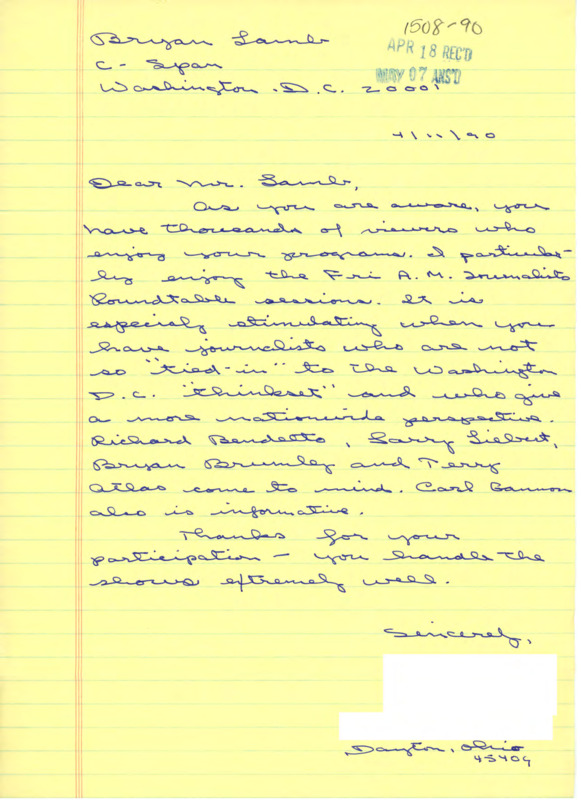 1508-90
APR 18 REC'D
MAY 07 ANS'D
Bryan Lamb
C-Span
Washington, D.C. 20001
4/11/90
Dear Mr. Lamb,
As you are aware, you
have thousands of viewers who
enjoy your programs. I particular-
ly enjoy the Fri A.M. Journalists
Roundtable sessions. It is
especialy stimulating when you
have journalists who are not
so "tied-in" to the Washington
D.C. "thinkset" and who give
a more nationwide perspective.
Richard Bendetto, Larry Liebert,
Bryan Brumley and Terry
Atlas come to mind. Carl Gannon
also is informative.
Thanks for your
participation - you handle the
shows extremely well.
Sincerely,
Dayton, Ohio
45409